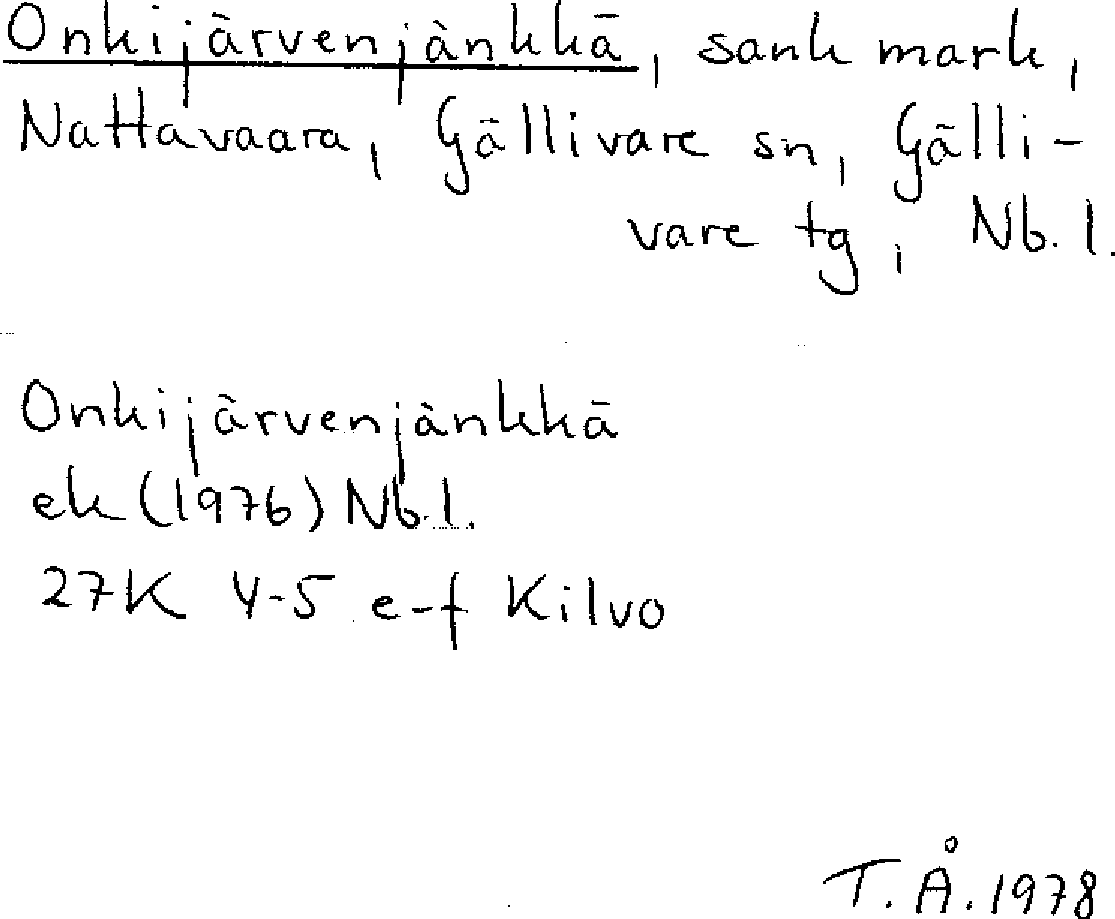 Onkijärvenjänkkä, sank mark,
Nattavaara, Gällivare sn, Gälli-
vare tg, Nb. l.
Onkijärvenjänkkä
ek (1976) Nb.l.
27K 4-5 e-f Kilvo
T.Å.1978